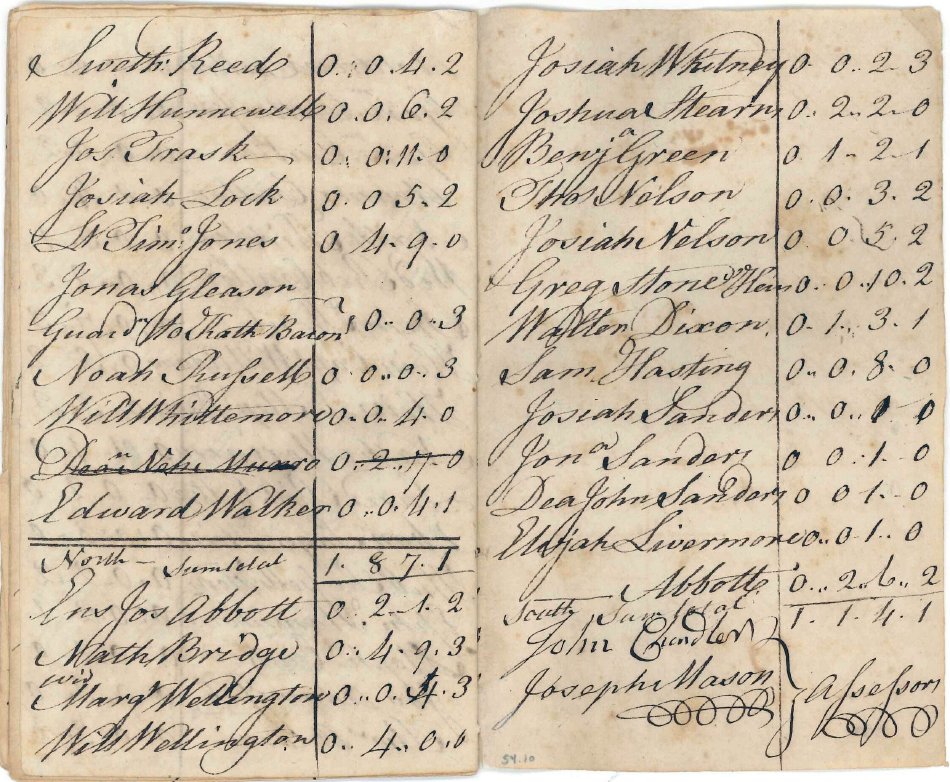 Sweth Reed 0. 0. 4. 2
Will Hunnewell 0. 0. 6. 2
Jos Trask 0. 0. 11. 0
Josiah Lock 0 0 5. 2
Lt Timo Jones 0 4. 9. 0
Jonas Gleason
Guardn to Kath Bacon 0.. 0.. 3
Noah Russell 0 0. 0.. 3
Will Whittemore 0.. 0. 4. 0
Dean Nehe Munro 0.. 2.. 7. 0
Edward Walker 0.. 0. 4. 1
North - Sum total 1. 8 7. 1
Ens Jos Abbott 0. 2.. 1. 2
Nath Bridge 0.. 4. 9. 3
wid
Margt Wellington 0.. 0. 4. 3
Will Wellington 0.. 4.. 0. 0
Josiah Whitney 0 0.. 2.. 3
Joshua Stearns 0.. 2.. 2.. 0
Benja Green 0. 1.. 2.. 1
Thos Nelson 0. 0. 3.. 2
Josiah Nelson 0 0 5. 2
Greg Stone 0.. 0. 10. 2
Walton Dixon. 0. 1.. 3. 1
Sam Hasting 0.. 0. 8. 0
Josiah Sanders 0.. 0.. 1 0
Jona Sanders 0 0.. 1.. 0
Dea John Sanders 0 0 1.. 0
Elijah Livermore 0.. 0.. 1.. 0
Abbott 0.. 2.. 6.. 2
South Sum total 1. 1. 4. 1
John Chandler
Joseph Mason Assessors
54.10